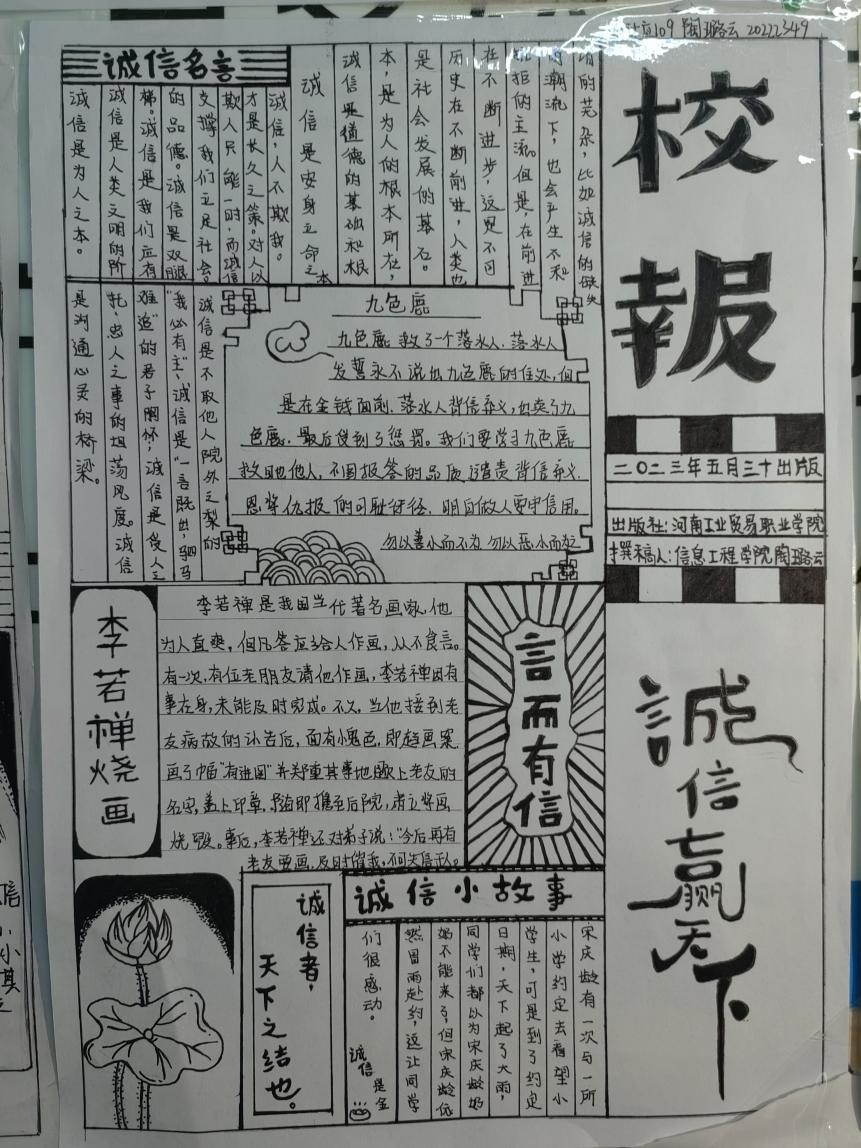 109 陶璐云 20222349
校報
二〇二三年五月三十出版
出版社:河南工业贸易职业学院
撰稿人:信息工程学院陶璐云
誠信赢天下
诚信名言
请的芜杂,比如诚信的缺失
的潮流下,也会产生不和
抗拒的主流。但是,在前进
在不断进步,这是不可
历史在不断前进,人类也
是社会发展的基石。
本,是为人的根本所在,
诚信是道德的基础和根
诚信是安身立命之本
诚信,人不欺我。
才是长久之策。对人以
欺人只能一时,而诚信
支撑我们立足社会。
的品德。诚信是双眼
梯。诚信是我们应有
诚信是人类文明的阶
诚信是为人之本。
诚信是不取他人院外之梨的
“我心有主”,诚信是“一言既出,驷马
难追”的君子胸怀;诚信是受人之
托,忠人之事的坦荡风度。诚信
是沟通心灵的桥梁。
九色鹿
九色鹿救了一个落水人,落水人
发誓永不说出九色鹿的住处,但
是在金钱面前,落水人背信弃义,出卖了九
色鹿,最后受到了惩罚。我们要学习九色鹿
救助他人,不图报答的品质,谴责背信弃义
恩将仇报的可耻行径,明白做人要守信用。
勿以善小而不为 勿以恶小而为之
李若禅烧画
李若禅是我国当代著名画家,他
为人直爽,但凡答应给人作画,从不食言。
有一次,有位老朋友请他作画,李若禅因有
事在身,未能及时完成。不久,当他接到老
友病故的讣告后,面有愧色,即趋画案
画了幅“百莲图”并郑重其事地题上老友的
名字,盖上印章,随即携至后院,肃立将画
烧毁。事后,李若禅还对弟子说:“今后再有
老友要画,及时催我,不可失信于人。
言而有信
诚信者,
天下之结也。
诚信小故事
宋庆龄有一次与一所
小学约定去看望小
学生,可是到了约定
日期,天下起了大雨,
同学们都以为宋庆龄奶
奶不能来了,但宋庆龄依
然冒雨赴约,这让同学
们很感动。
诚信是金